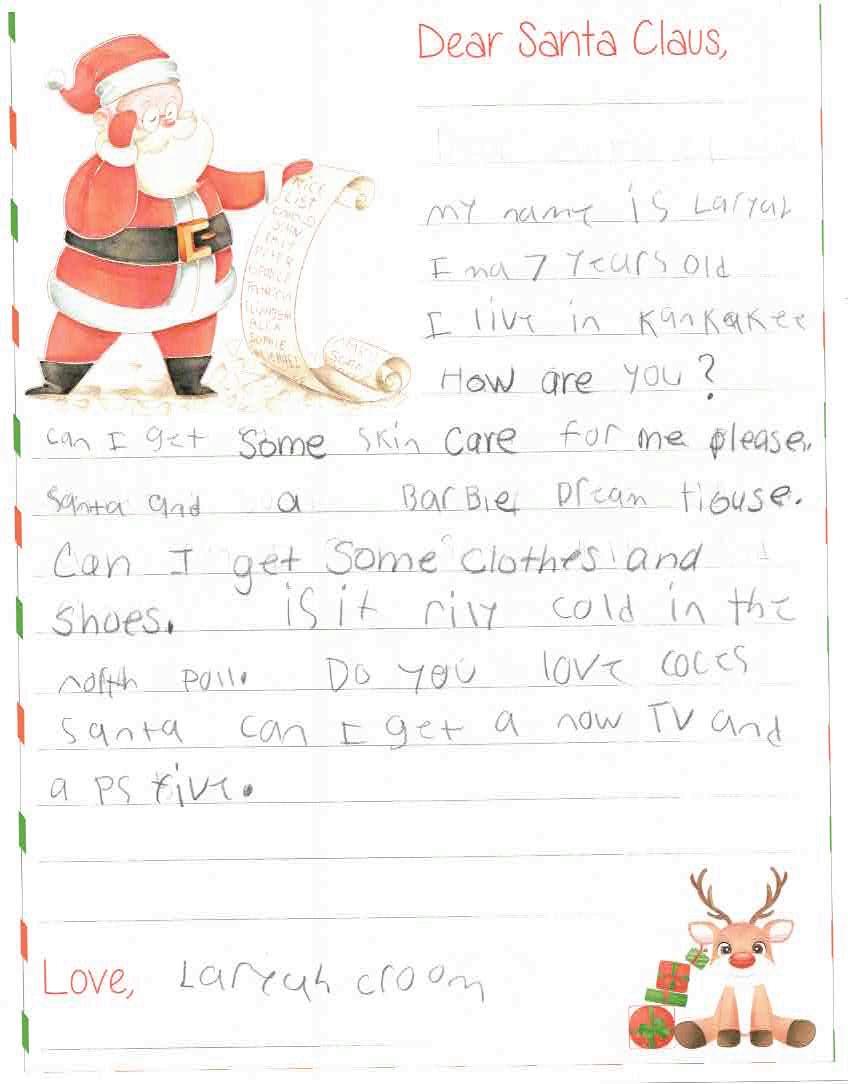 Dear Santa Claus,
NICE
LIST
my name is Laryah
I ma 7 Years old
I live in Kankakee
How are you?
can I get some skin care for me please.
Santa and a Barbie Dream House.
Can I get some clothes and
shoes. is it rily cold in the
north poll. Do you love coces
Santa can I get a now TV and
a PS five.
Love, Laryah croom